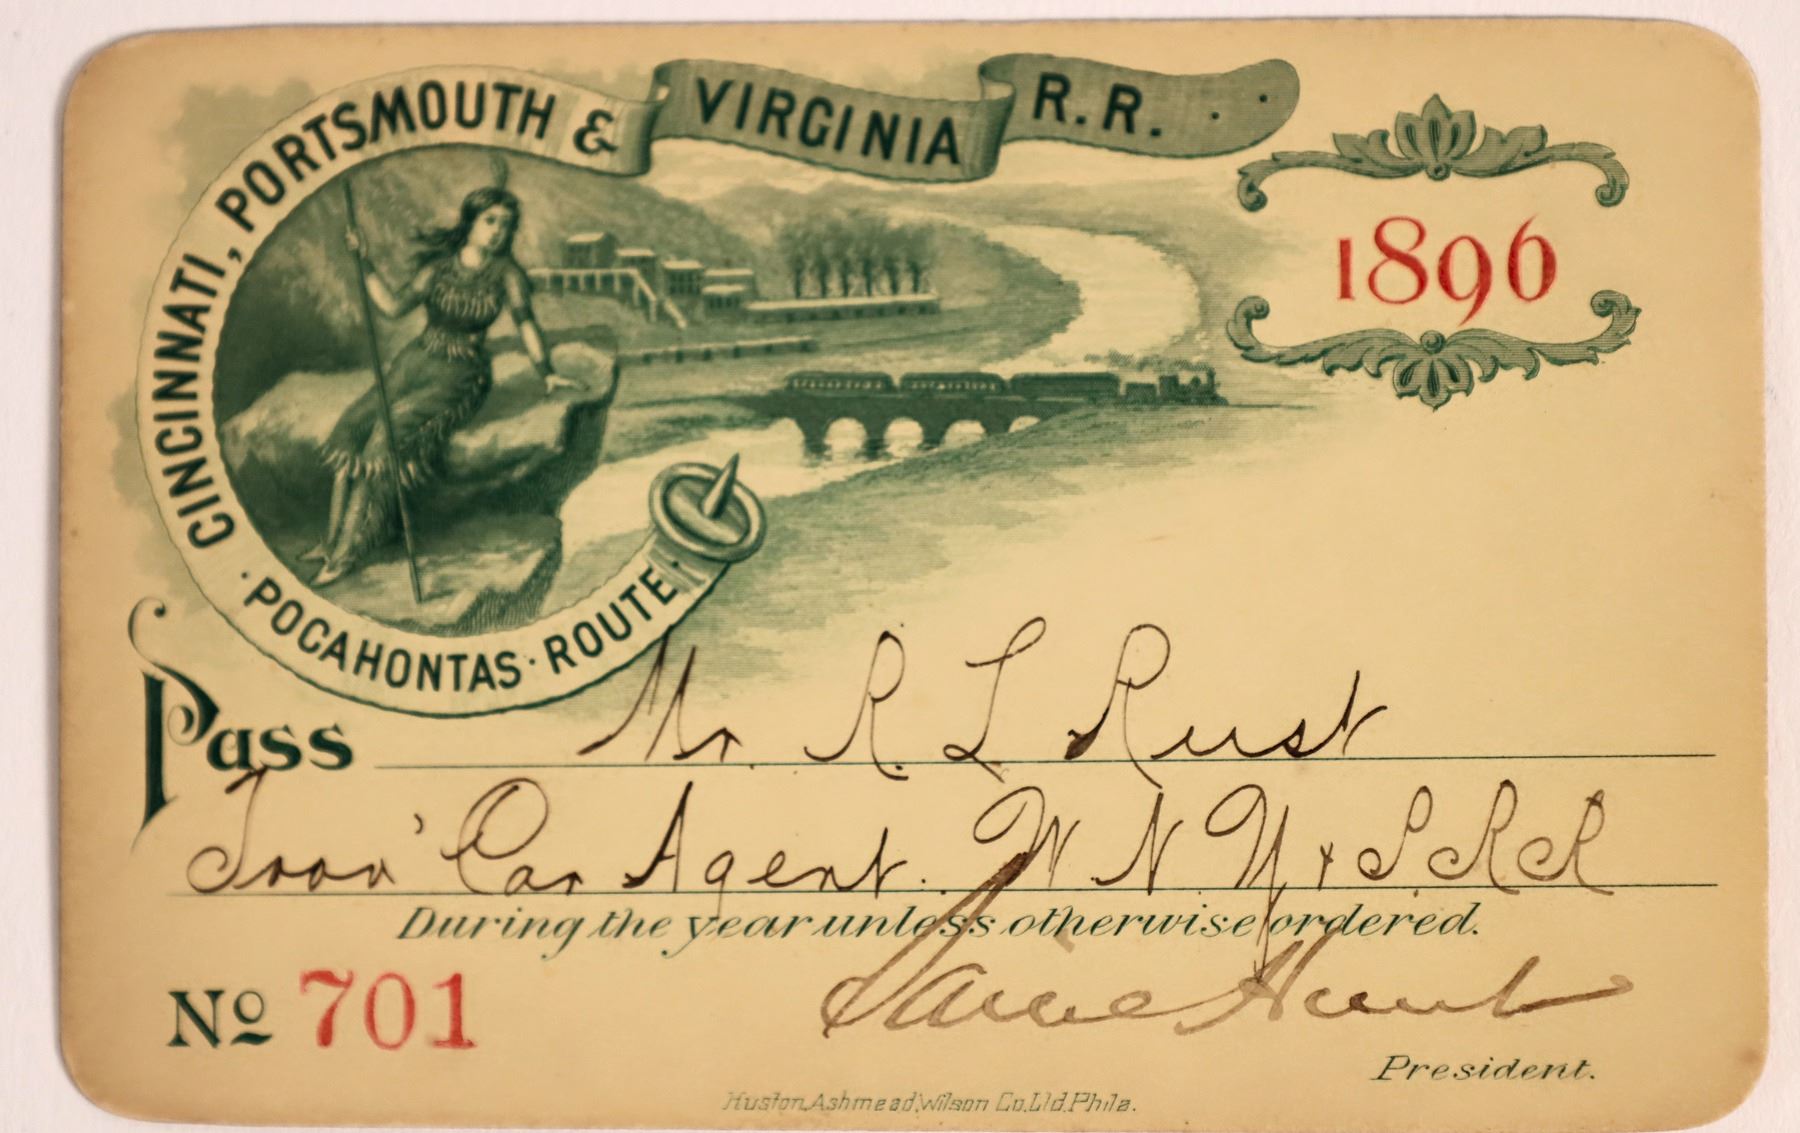 CINCINNATI, PORTSMOUTH & VIRGINIA R.R.
· POCAHONTAS · ROUTE ·
1896
Pass Mr. R. L Rust
Trav' Car Agent. W N Y & P. R R
During the year unless otherwise ordered.
No 701
Hunt
President.
Huston, Ashmead, Wilson Co. Ltd. Phila.